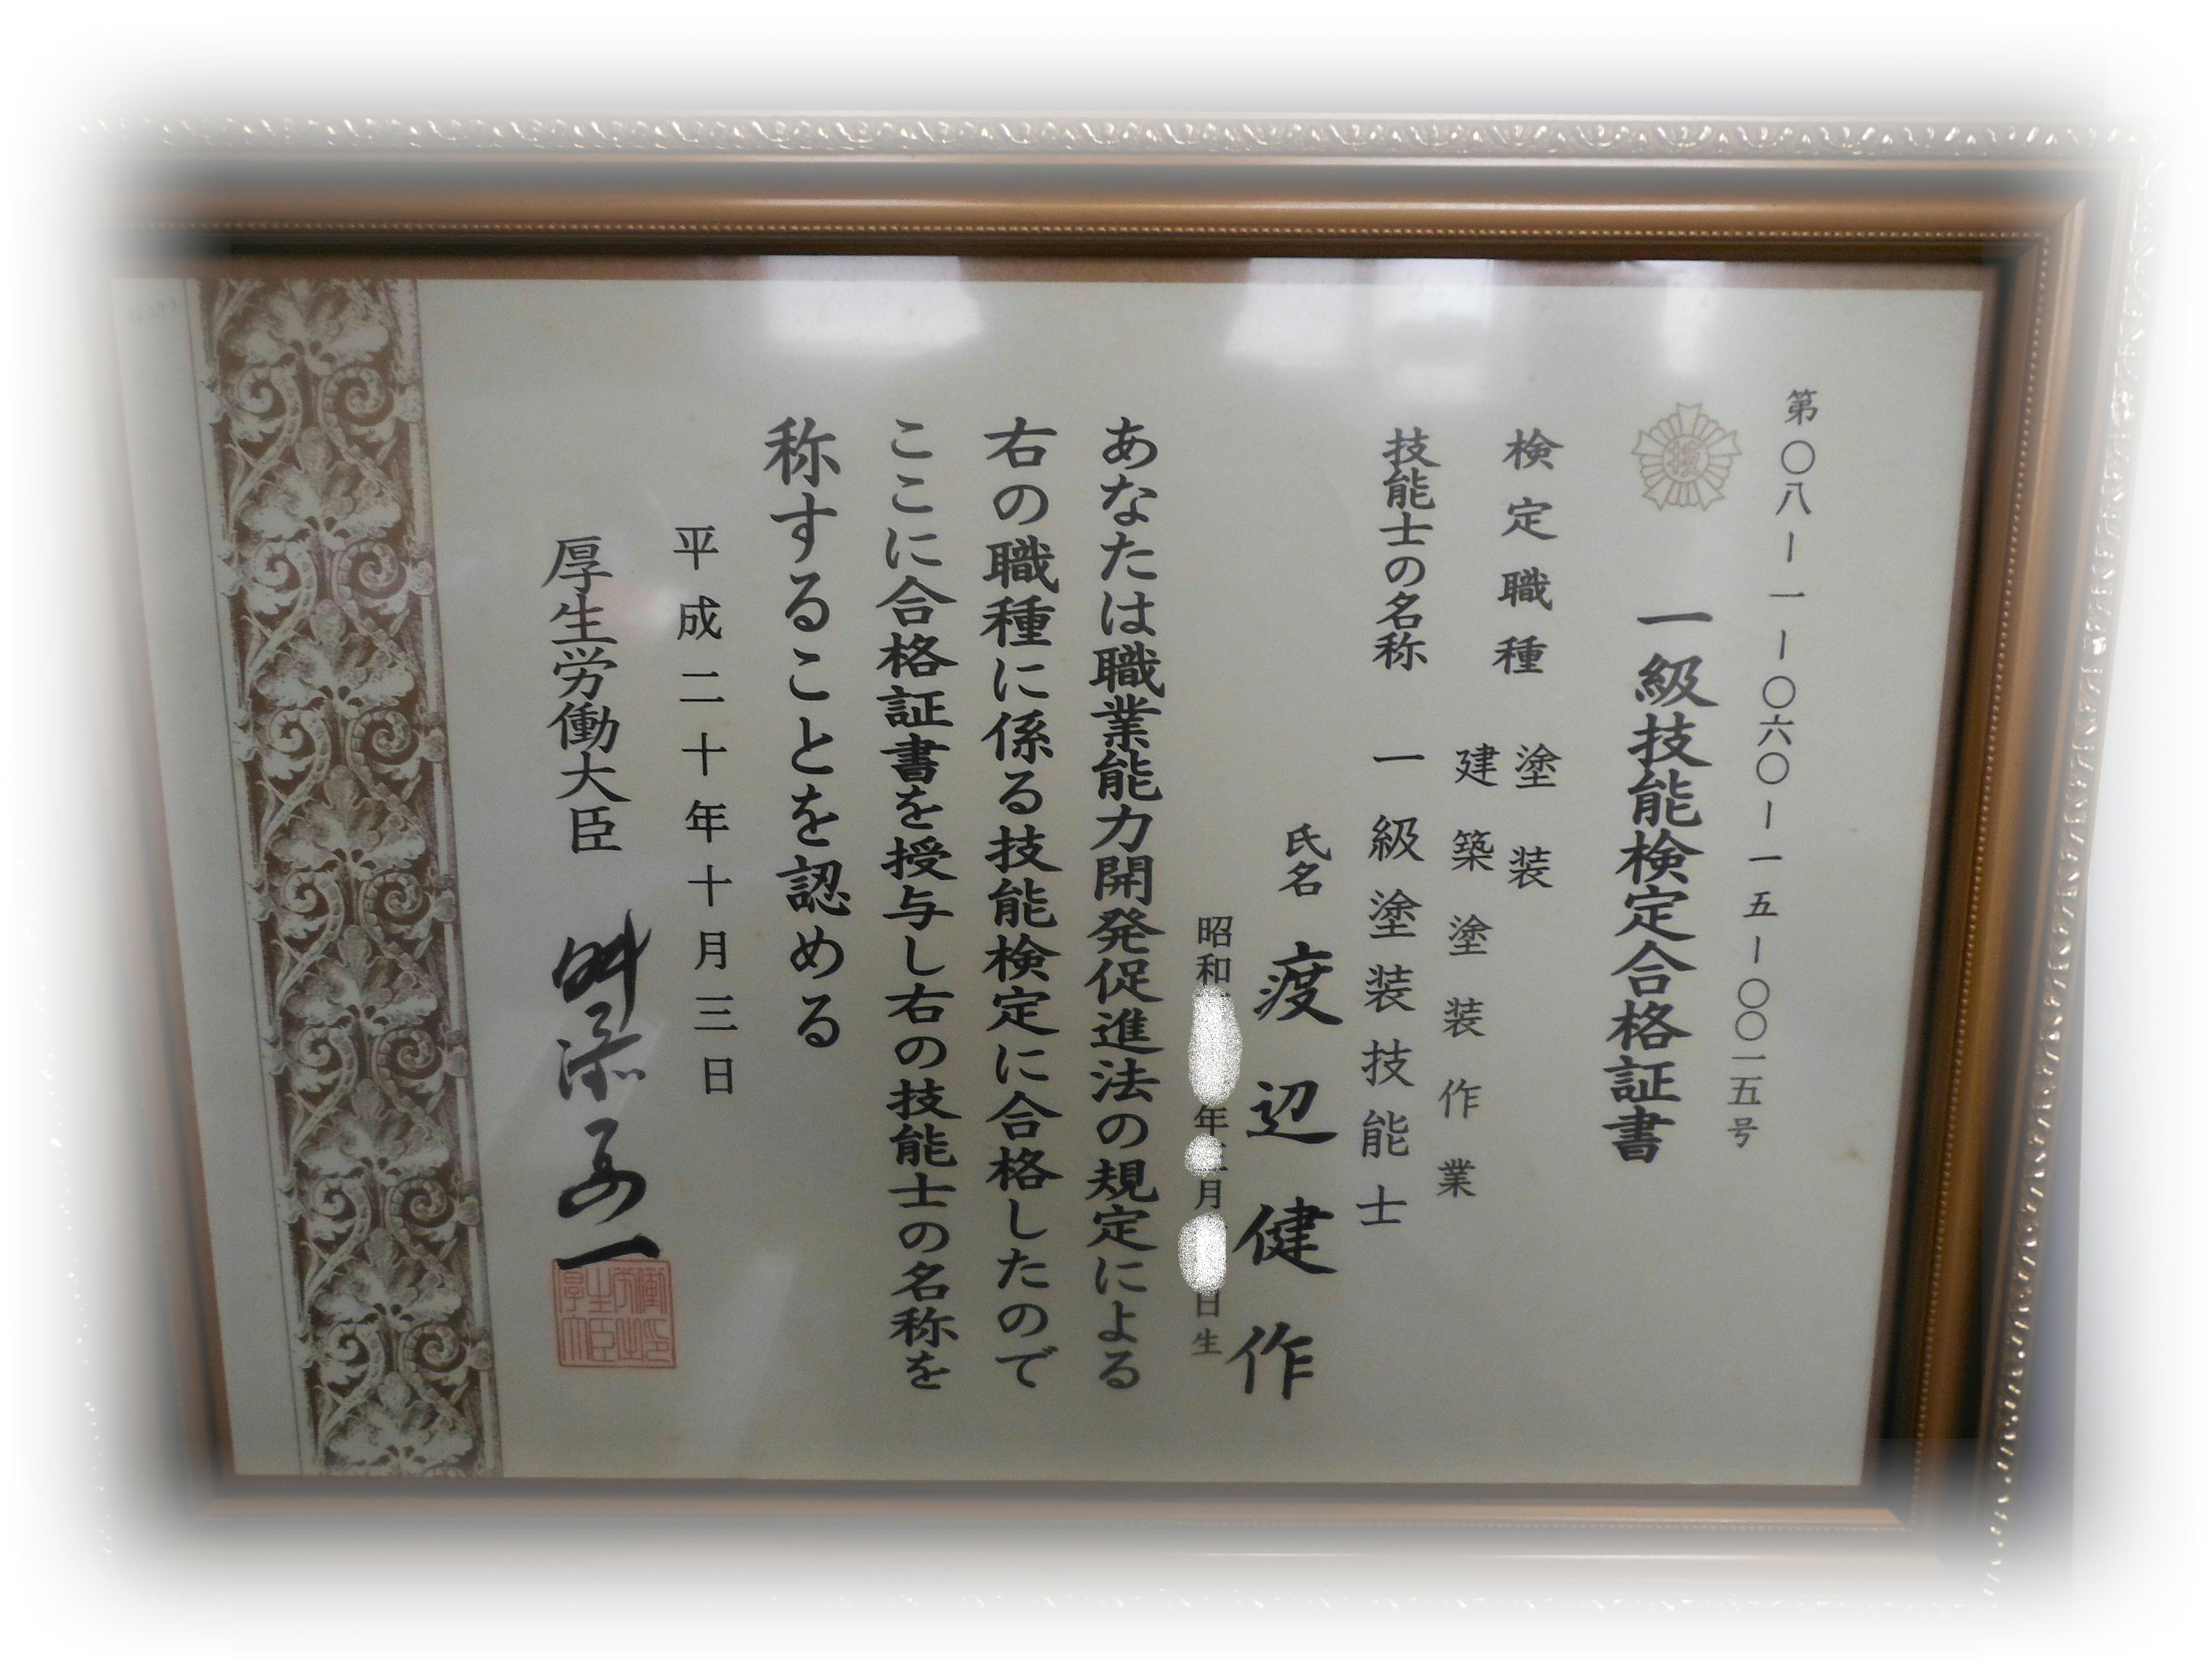 第〇八ー一ー〇六〇ー一五ー〇〇一五号
一級技能検定合格証書
検定職種 塗装
建築塗装作業
技能士の名称 一級塗装技能士
氏名 渡辺健作
昭和 年 月 日生
あなたは職業能力開発促進法の規定による
右の職種に係る技能検定に合格したので
ここに合格証書を授与し右の技能士の名称を
称することを認める
平成二十年十月三日
厚生労働大臣 舛添要一